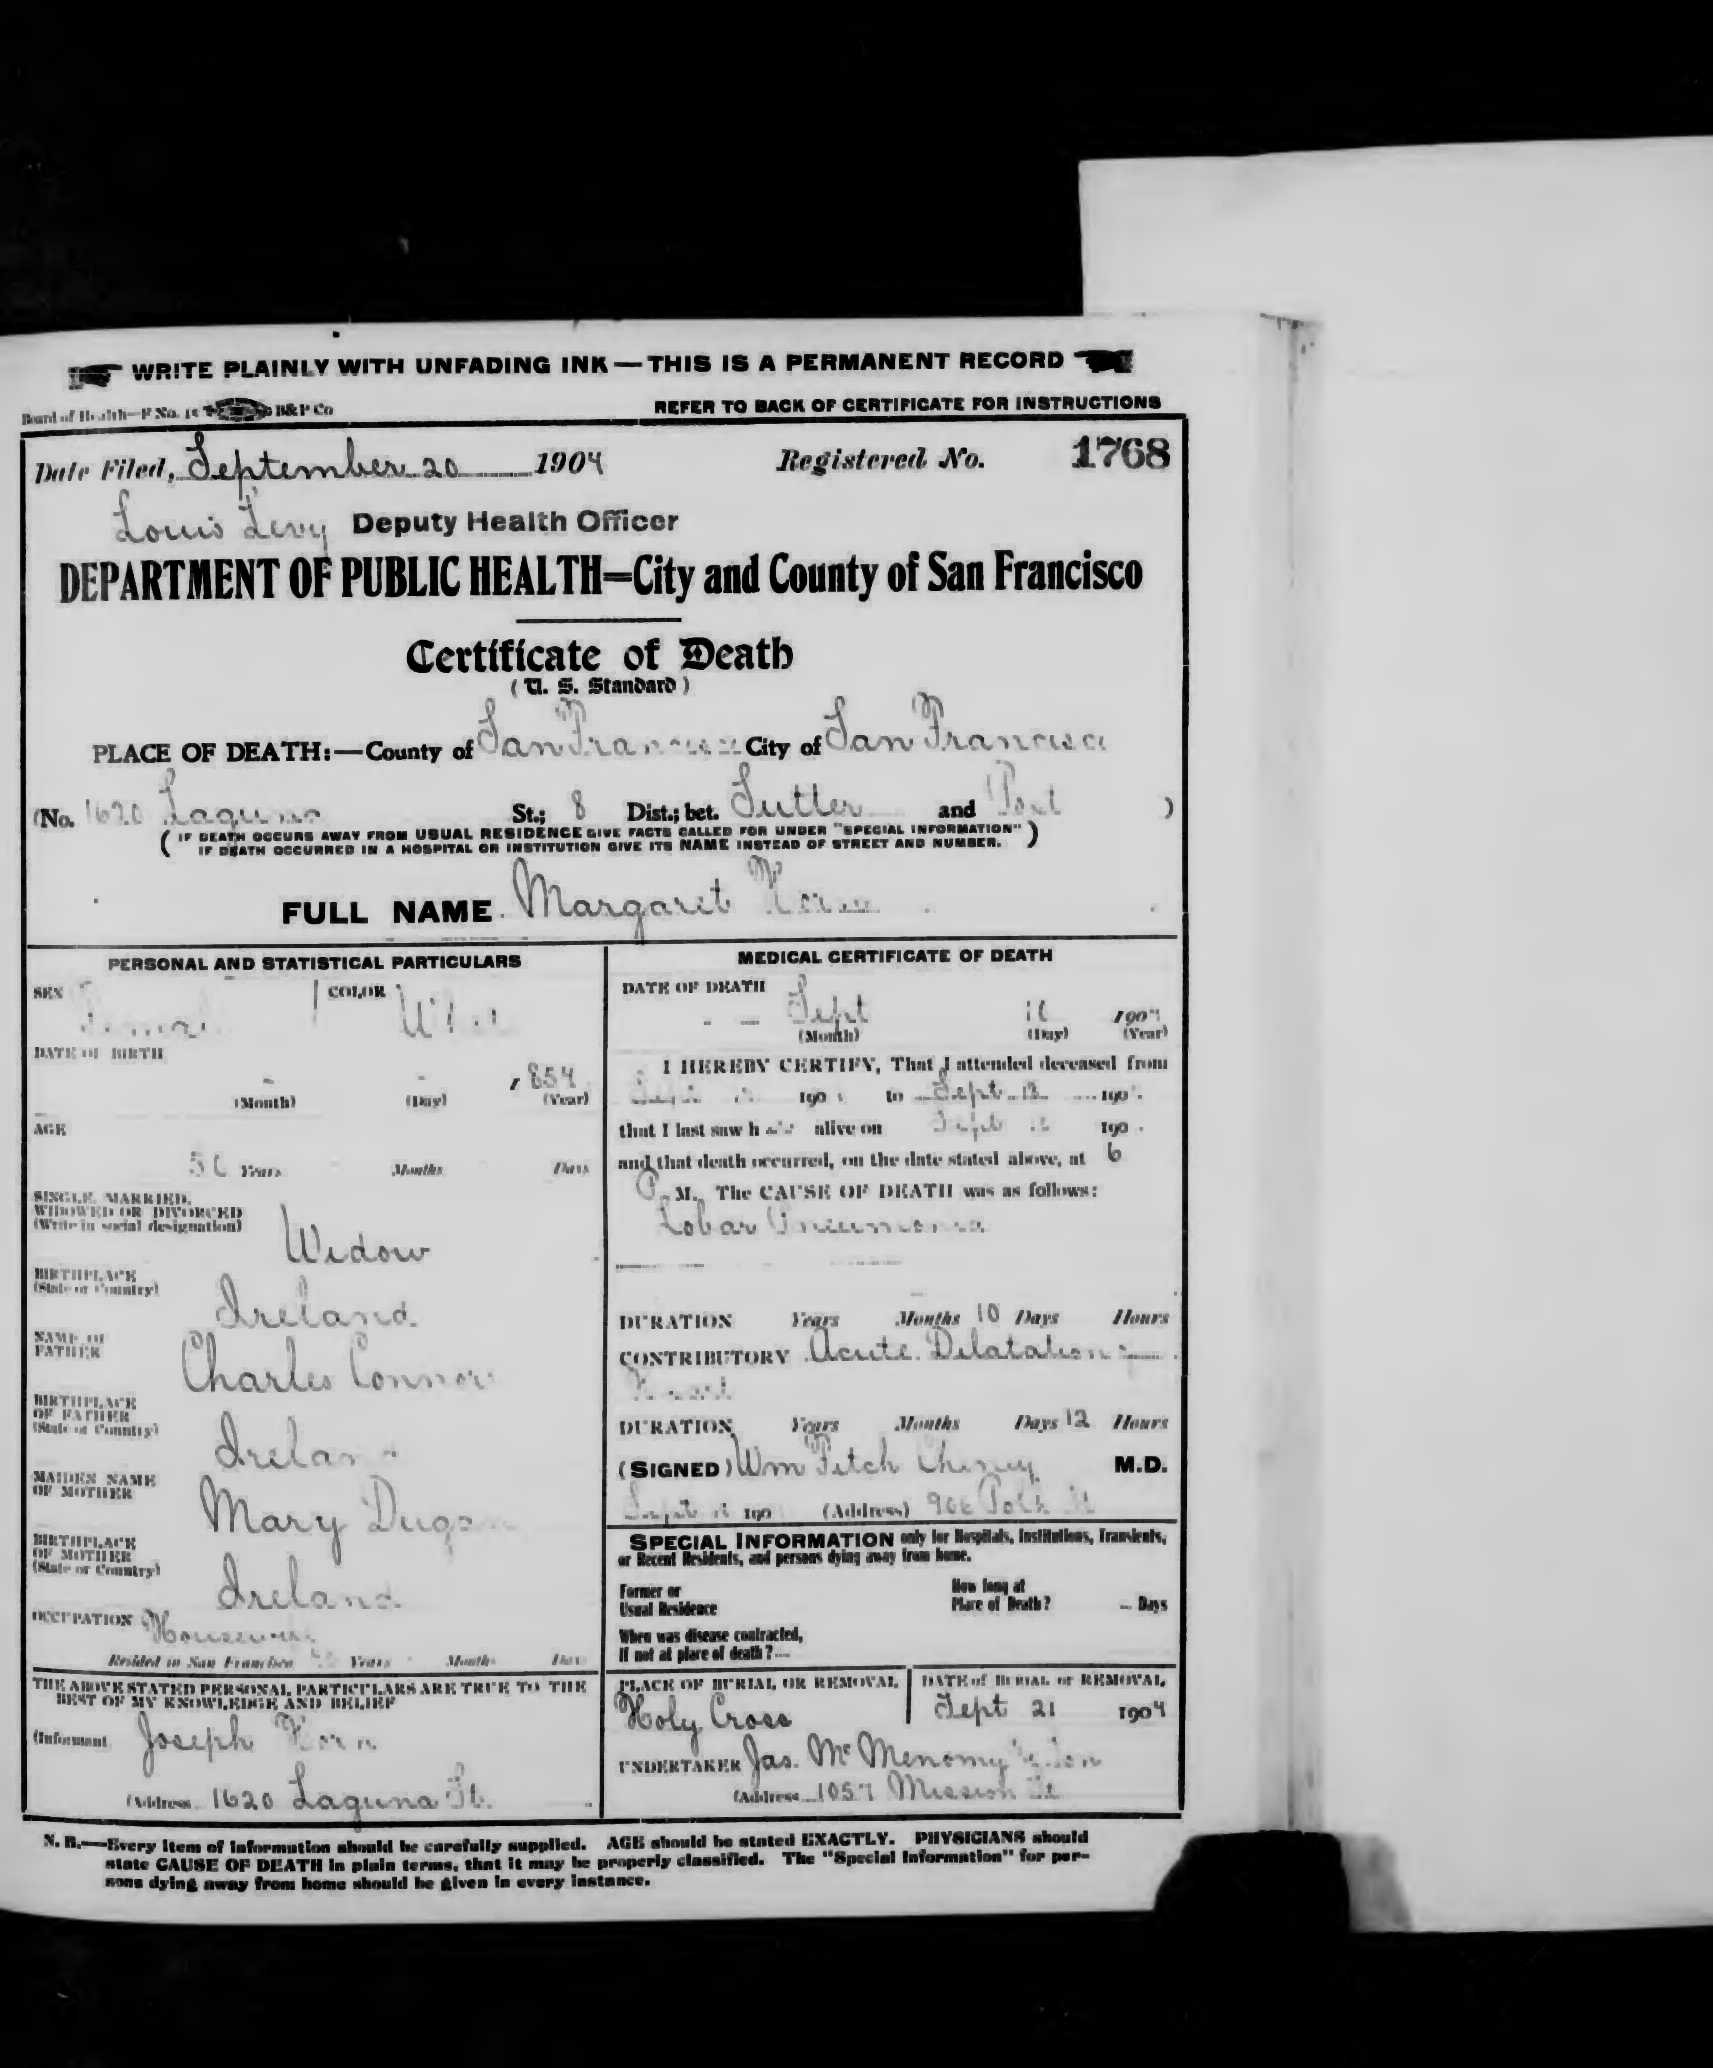 WRITE PLAINLY WITH UNFADING INK — THIS IS A PERMANENT RECORD
Board of Health—F No. 15 B&P Co
REFER TO BACK OF CERTIFICATE FOR INSTRUCTIONS
Date Filed, September 20 1904 Registered No. 1768
Louis Levy Deputy Health Officer
DEPARTMENT OF PUBLIC HEALTH=City and County of San Francisco
Certificate of Death
(U. S. Standard)
PLACE OF DEATH:—County of San Francisco City of San Francisco
(No. 1620 Laguna St.; 8 Dist.; bet. Sutter and Post )
( IF DEATH OCCURS AWAY FROM USUAL RESIDENCE GIVE FACTS CALLED FOR UNDER "SPECIAL INFORMATION" )
IF DEATH OCCURRED IN A HOSPITAL OR INSTITUTION GIVE ITS NAME INSTEAD OF STREET AND NUMBER.
FULL NAME Margaret
PERSONAL AND STATISTICAL PARTICULARS
SEX Female COLOR White
DATE OF BIRTH
- - , 1854
(Month) (Day) (Year)
AGE
Years Months Days
SINGLE, MARRIED,
WIDOWED OR DIVORCED
(Write in social designation)
Widow
BIRTHPLACE
(State or Country)
Ireland
NAME OF
FATHER
Charles Connor
BIRTHPLACE
OF FATHER
(State or Country)
Ireland
MAIDEN NAME
OF MOTHER
Mary Dugan
BIRTHPLACE
OF MOTHER
(State or Country)
Ireland
OCCUPATION Housewife
Resided in San Francisco Years Months Days
THE ABOVE STATED PERSONAL PARTICULARS ARE TRUE TO THE
BEST OF MY KNOWLEDGE AND BELIEF
(Informant Joseph
(Address 1620 Laguna St.
MEDICAL CERTIFICATE OF DEATH
DATE OF DEATH
Sept 1904
(Month) (Day) (Year)
I HEREBY CERTIFY, That I attended deceased from
Sept 190 to Sept 190
that I last saw h alive on Sept 190
and that death occurred, on the date stated above, at 6
P. M. The CAUSE OF DEATH was as follows:
Lobar Pneumonia
DURATION Years Months 10 Days Hours
CONTRIBUTORY Acute Dilatation of
Heart
DURATION Years Months Days 12 Hours
(SIGNED) Wm Fitch Cheney M.D.
Sept 190 (Address) 906 Polk St
SPECIAL INFORMATION only for Hospitals, Institutions, Transients,
or Recent Residents, and persons dying away from home.
Former or
Usual Residence
How long at
Place of Death? Days
When was disease contracted,
If not at place of death?
PLACE OF BURIAL OR REMOVAL
Holy Cross
DATE of BURIAL or REMOVAL
Sept 21 1904
UNDERTAKER Jas. McMenomy & Son
(Address 1057 Mission St
N. B.—Every item of information should be carefully supplied. AGE should be stated EXACTLY. PHYSICIANS should
state CAUSE OF DEATH in plain terms, that it may be properly classified. The "Special Information" for per-
sons dying away from home should be given in every instance.